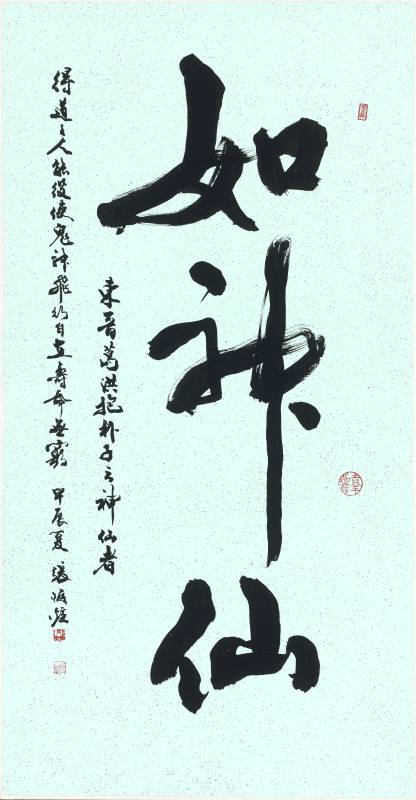 如神仙
東晉葛洪抱朴子云神仙者
得道之人能役使鬼神飛行自在壽命無窮 甲辰夏